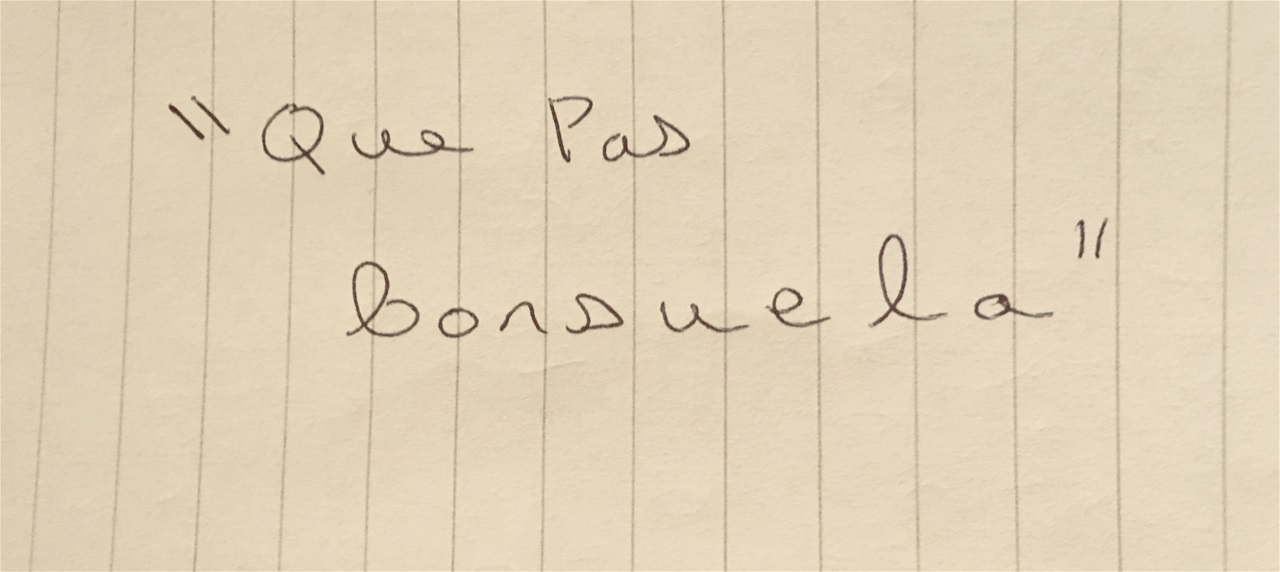 "Que Pas
bonsuela"